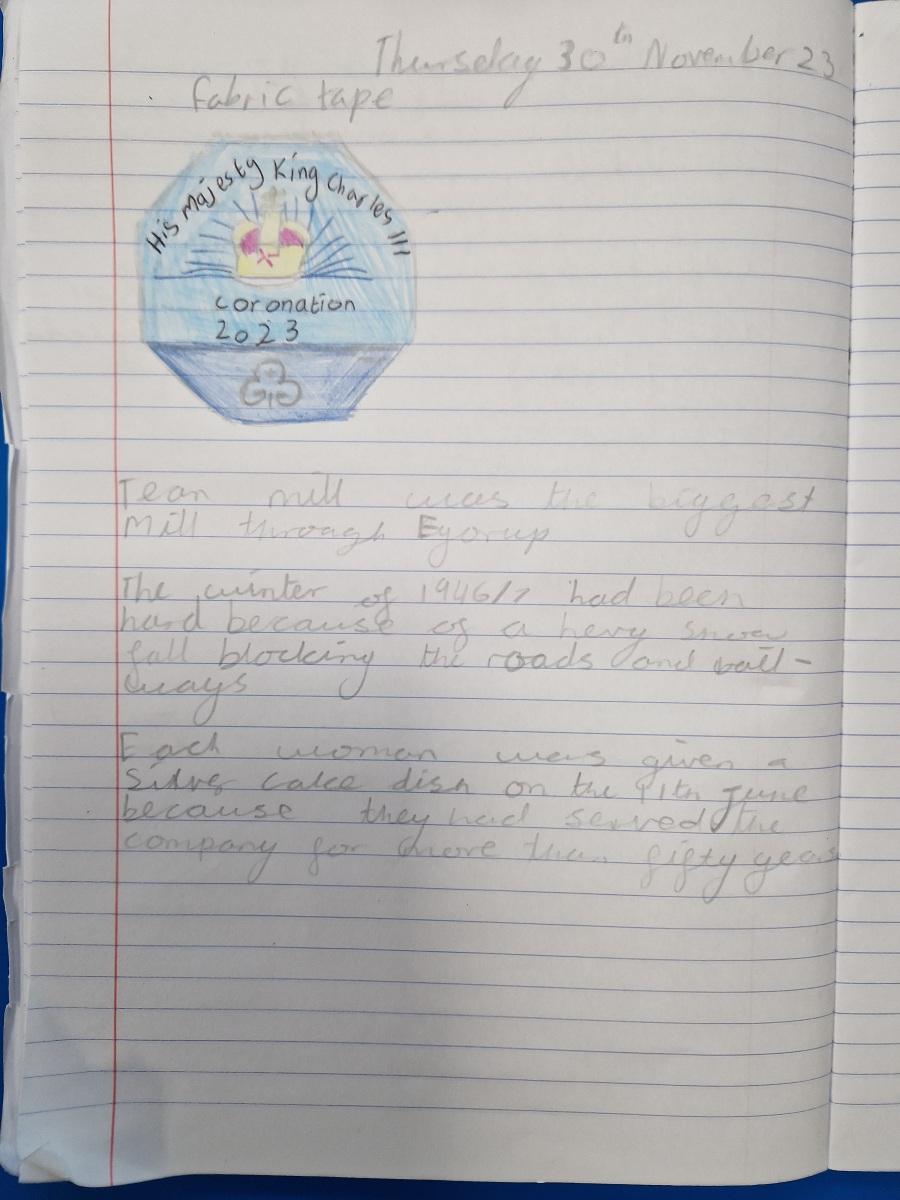 Thursday 30th November 23
fabric tape
His Majesty King Charles III
coronation
2023
Tean mill was the biggest
Mill through Eyorup
The winter of 1946/7 had been
hard because of a hevy snow
fall blocking the roads and rail-
ways
Each woman was given a
Silver cake dish on the 11th June
because they had served the
company for more than fifty years